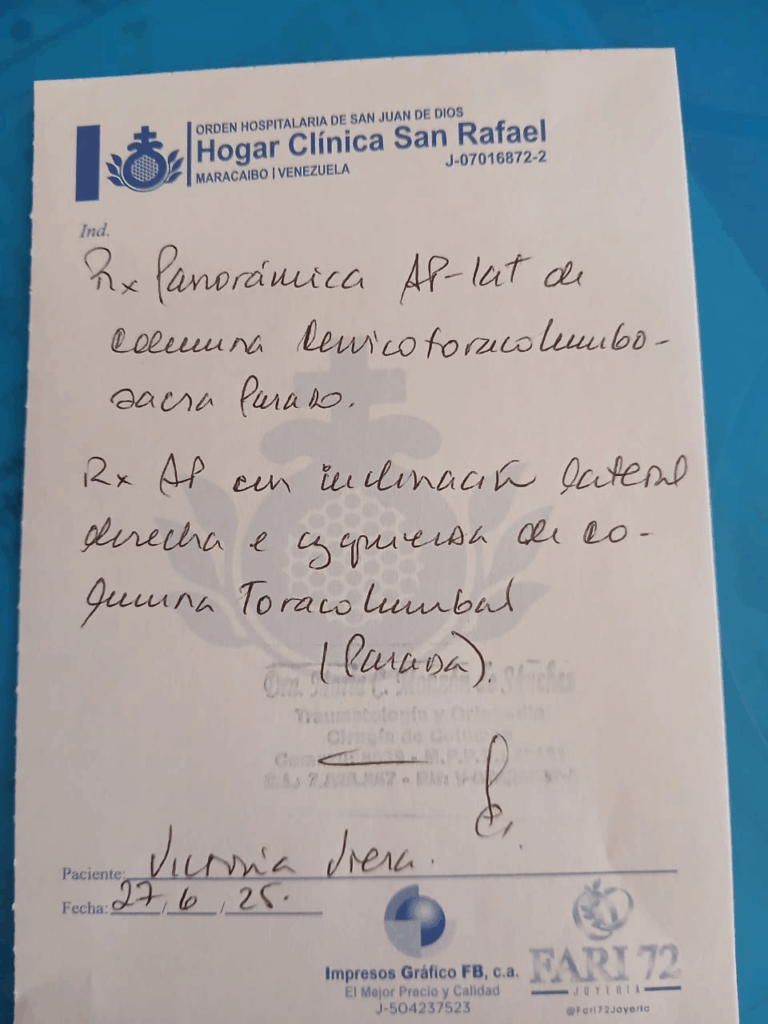 ORDEN HOSPITALARIA DE SAN JUAN DE DIOS
Hogar Clínica San Rafael
MARACAIBO | VENEZUELA
J-07016872-2
Ind.
Rx Panorámica AP-lat de
columna Cervicotoracolumbo-
sacra
Rx AP con inclinación lateral
derecha e izquierda de co-
lumna Toracolumbal
(Parada).
Traumatología y
Cirugía de
Paciente: Victoria
Fecha: 27, 6, 25.
Impresos Gráfico FB, c.a.
El Mejor Precio y Calidad
J-504237523
FARI 72
JOYERIA
@Fari72Joyeria